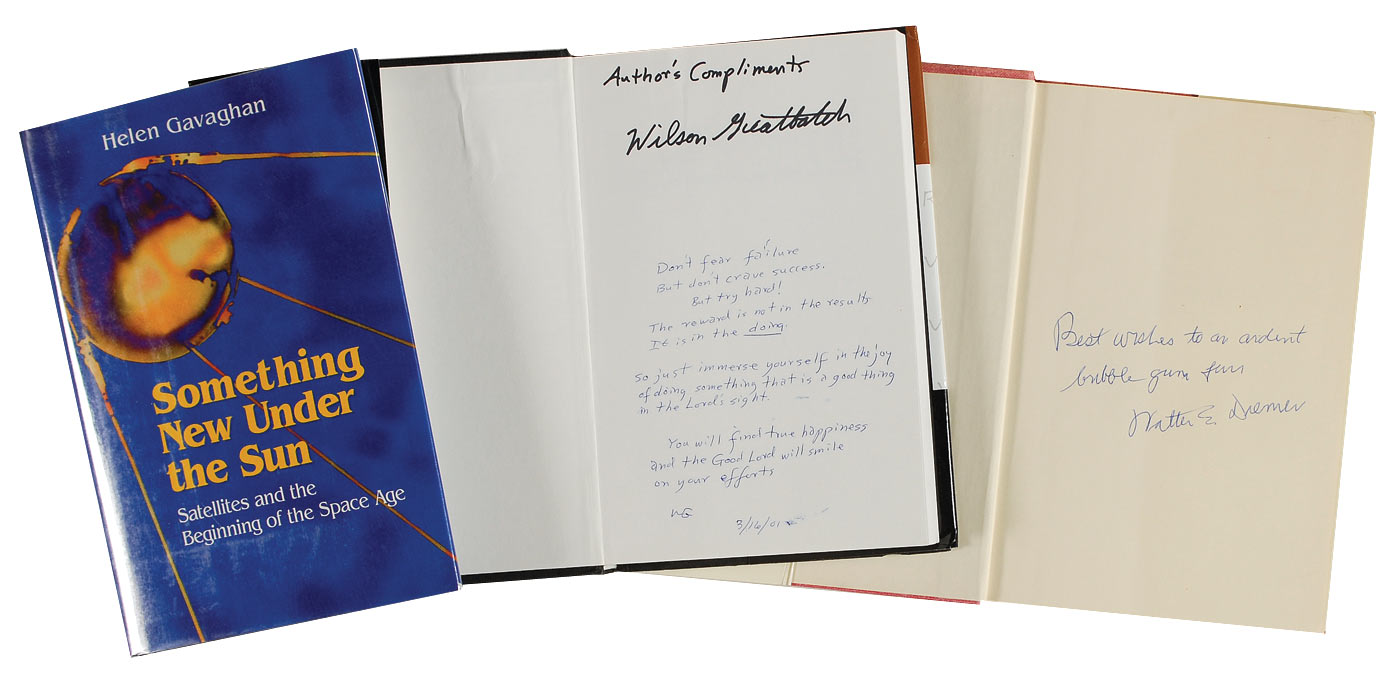 Helen Gavaghan
Something
New Under
the Sun
Satellites and the
Beginning of the Space Age
Author's Compliments
Wilson Greatbatch
Don't fear failure
But don't crave success.
But try hard!
The reward is not in the results
It is in the doing.
So just immerse yourself in the joy
of doing something that is a good thing
in the Lord's sight.
You will find true happiness
and the Good Lord will smile
on your efforts
WG
3/16/01
Best wishes to an ardent
bubble gum fan
Walter E Diemer